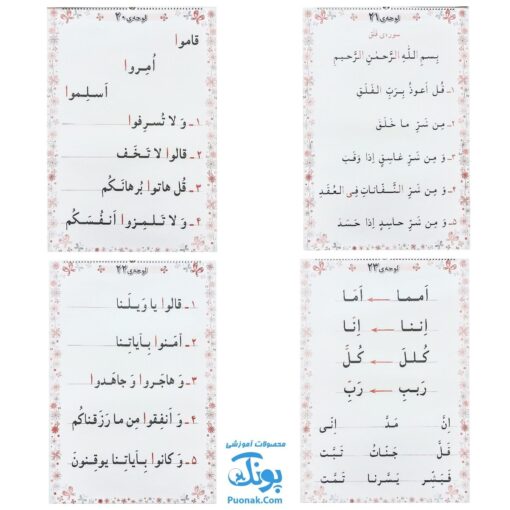 لوحه‌ی ۲۱
سوره‌ی فلق
بِسمِ اللّٰهِ الرَّحمٰنِ الرَّحیمِ
۱ـ قُل اَعوذُ بِرَبِّ الفَلَقِ
۲ـ مِن شَرِّ ما خَلَقَ
۳ـ وَ مِن شَرِّ غاسِقٍ اِذا وَقَبَ
۴ـ وَ مِن شَرِّ النَّفّاثاتِ فِی العُقَدِ
۵ـ وَ مِن شَرِّ حاسِدٍ اِذا حَسَدَ
لوحه‌ی ۲۰
قاموا
اُمِروا
اَسلِموا
۱ـ وَ لا تُسرِفوا
۲ـ قالوا لا تَخَف
۳ـ قُل هاتوا بُرهانَکُم
۴ـ وَ لا تَلمِزوا اَنفُسَکُم
لوحه‌ی ۲۳
اَمما ← اَمّا
اِننا ← اِنّا
کُللَ ← کُلَّ
رَببِ ← رَبِّ
اِنَّ مَدَّ اِنّی
فَلَّ جَنّاتُ تَبَّت
فَبَشِّر یَسَّرنا تَمَّت
لوحه‌ی ۲۲
۱ـ قالوا یا وَیلَنا
۲ـ آمَنوا بِآیاتِنا
۳ـ وَ هاجَروا وَ جاهَدوا
۴ـ وَ اَنفِقوا مِن ما رَزَقناکُم
۵ـ وَ کانوا بِآیاتِنا یوقِنونَ
محصولات آموزشی
پونک
Puonak.Com